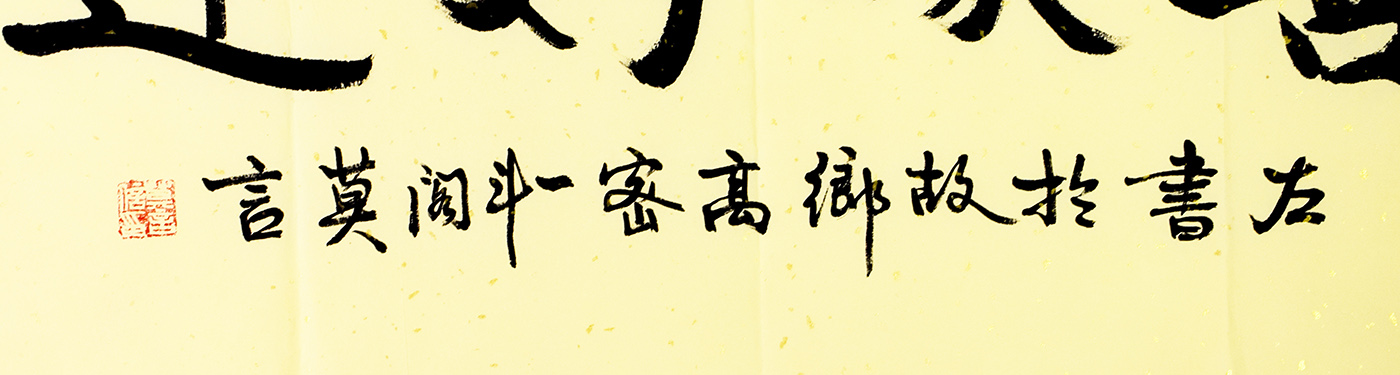 左書於故鄉高密一斗閣莫言